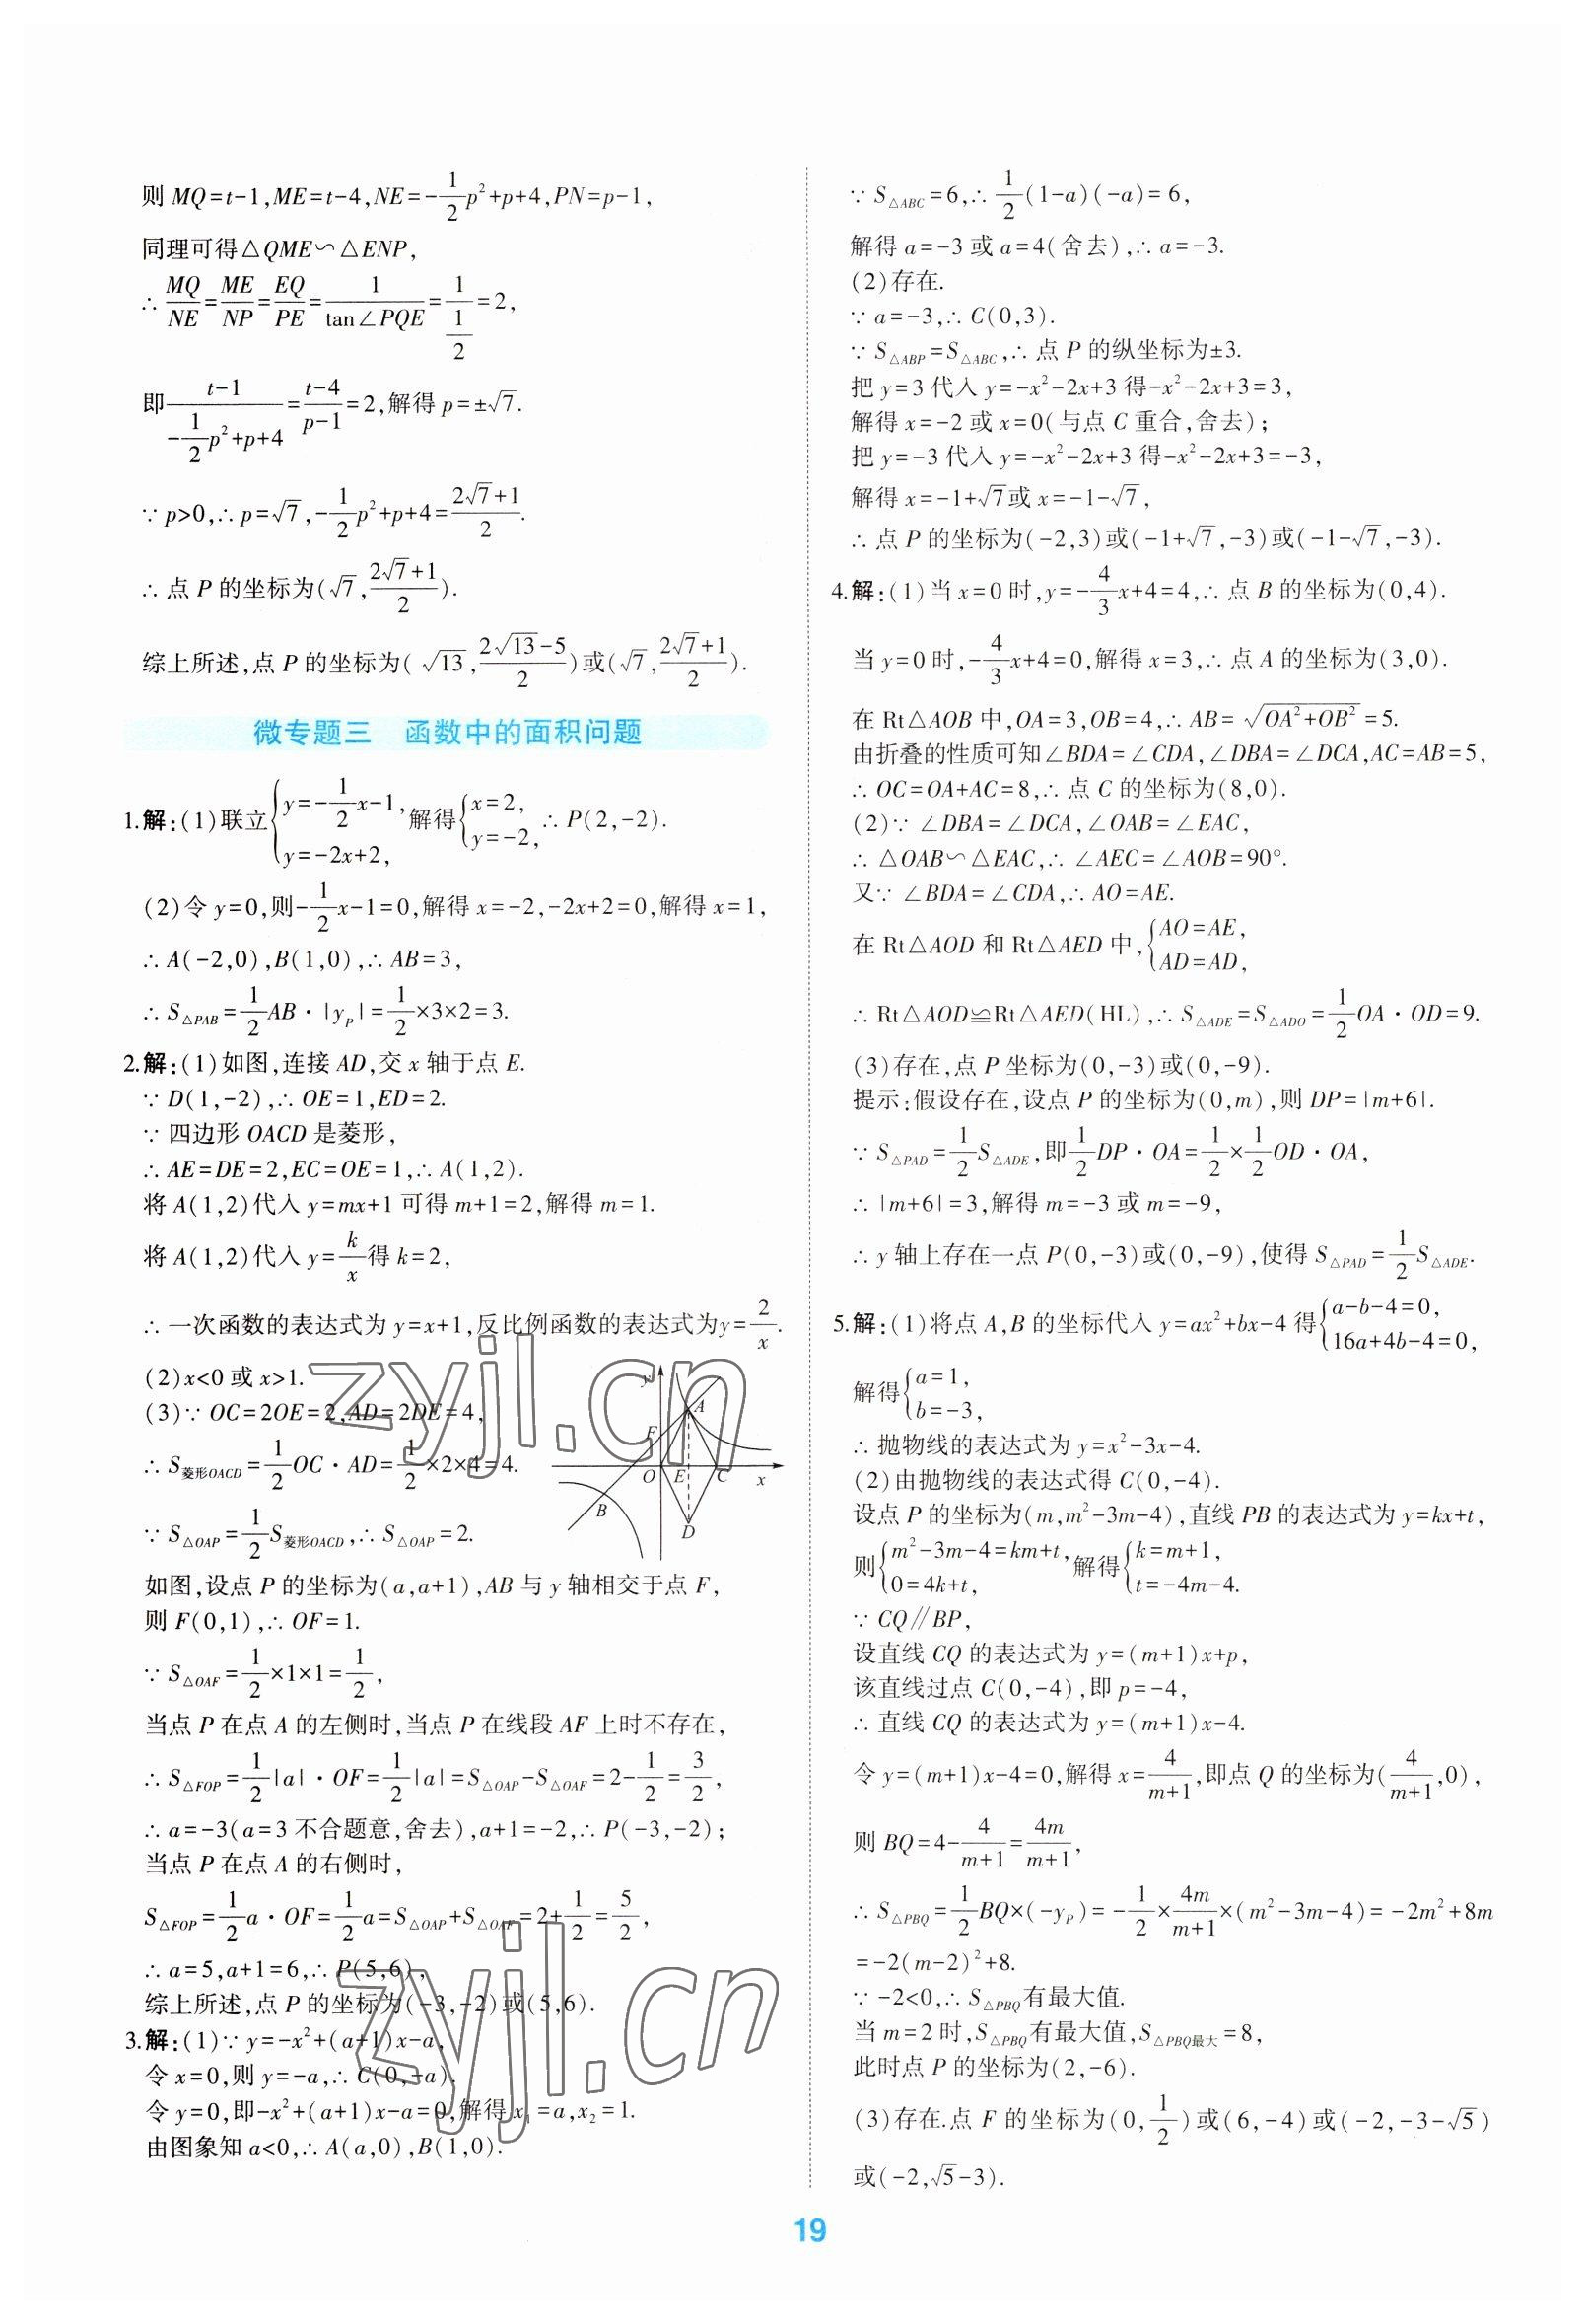 则 MQ=t-1,ME=t-4,NE=-1/2p²+p+4,PN=p-1,
同理可得△QME∽△ENP,
∴ MQ/NE=ME/NP=EQ/PE=1/tan∠PQE=1/(1/2)=2,
即(t-1)/(-1/2p²+p+4)=(t-4)/(p-1)=2,解得 p=±√7.
∵ p>0,∴ p=√7,-1/2p²+p+4=(2√7+1)/2.
∴ 点 P 的坐标为(√7,(2√7+1)/2).
综上所述,点 P 的坐标为(√13,(2√13-5)/2)或(√7,(2√7+1)/2).
微专题三 函数中的面积问题
1.解:(1)联立{y=-1/2x-1, y=-2x+2,解得{x=2, y=-2,∴ P(2,-2).
(2)令 y=0,则-1/2x-1=0,解得 x=-2,-2x+2=0,解得 x=1,
∴ A(-2,0),B(1,0),∴ AB=3,
∴ S△PAB=1/2AB·|yp|=1/2×3×2=3.
2.解:(1)如图,连接 AD,交 x 轴于点 E.
∵ D(1,-2),∴ OE=1,ED=2.
∵ 四边形 OACD 是菱形,
∴ AE=DE=2,EC=OE=1,∴ A(1,2).
将 A(1,2)代入 y=mx+1 可得 m+1=2,解得 m=1.
将 A(1,2)代入 y=k/x得 k=2,
∴ 一次函数的表达式为 y=x+1,反比例函数的表达式为y=2/x.
(2)x<0 或 x>1.
(3)∵ OC=2OE=2,AD=2DE=4,
∴ S菱形OACD=1/2OC·AD=1/2×2×4=4.
y
A
F
O
E
C
x
B
D
∵ S△OAP=1/2S菱形OACD,∴ S△OAP=2.
如图,设点 P 的坐标为(a,a+1),AB 与 y 轴相交于点 F,
则 F(0,1),∴ OF=1.
∵ S△OAF=1/2×1×1=1/2,
当点 P 在点 A 的左侧时,当点 P 在线段 AF 上时不存在,
∴ S△FOP=1/2|a|·OF=1/2|a|=S△OAP-S△OAF=2-1/2=3/2,
∴ a=-3(a=3 不合题意,舍去),a+1=-2,∴ P(-3,-2);
当点 P 在点 A 的右侧时,
S△FOP=1/2a·OF=1/2a=S△OAP+S△OAF=2+1/2=5/2,
∴ a=5,a+1=6,∴ P(5,6),
综上所述,点 P 的坐标为(-3,-2)或(5,6).
3.解:(1)∵ y=-x²+(a+1)x-a,
令 x=0,则 y=-a,∴ C(0,-a).
令 y=0,即-x²+(a+1)x-a=0,解得 x₁=a,x₂=1.
由图象知 a<0,∴ A(a,0),B(1,0).
∵ S△ABC=6,∴ 1/2(1-a)(-a)=6,
解得 a=-3 或 a=4(舍去),∴ a=-3.
(2)存在.
∵ a=-3,∴ C(0,3).
∵ S△ABP=S△ABC,∴ 点 P 的纵坐标为±3.
把 y=3 代入 y=-x²-2x+3 得-x²-2x+3=3,
解得 x=-2 或 x=0(与点 C 重合,舍去);
把 y=-3 代入 y=-x²-2x+3 得-x²-2x+3=-3,
解得 x=-1+√7或 x=-1-√7,
∴ 点 P 的坐标为(-2,3)或(-1+√7,-3)或(-1-√7,-3).
4.解:(1)当 x=0 时,y=-4/3x+4=4,∴ 点 B 的坐标为(0,4).
当 y=0 时,-4/3x+4=0,解得 x=3,∴ 点 A 的坐标为(3,0).
在 Rt△AOB 中,OA=3,OB=4,∴ AB=√(OA²+OB²)=5.
由折叠的性质可知∠BDA=∠CDA,∠DBA=∠DCA,AC=AB=5,
∴ OC=OA+AC=8,∴ 点 C 的坐标为(8,0).
(2)∵ ∠DBA=∠DCA,∠OAB=∠EAC,
∴ △OAB∽△EAC,∴ ∠AEC=∠AOB=90°.
又∵ ∠BDA=∠CDA,∴ AO=AE.
在 Rt△AOD 和 Rt△AED 中,{AO=AE, AD=AD,
∴ Rt△AOD≌Rt△AED(HL),∴ S△ADE=S△ADO=1/2OA·OD=9.
(3)存在,点 P 坐标为(0,-3)或(0,-9).
提示:假设存在,设点 P 的坐标为(0,m),则 DP=|m+6|.
∵ S△PAD=1/2S△ADE,即1/2DP·OA=1/2×1/2OD·OA,
∴ |m+6|=3,解得 m=-3 或 m=-9,
∴ y 轴上存在一点 P(0,-3)或(0,-9),使得 S△PAD=1/2S△ADE.
5.解:(1)将点 A,B 的坐标代入 y=ax²+bx-4 得{a-b-4=0, 16a+4b-4=0,
解得{a=1, b=-3,
∴ 抛物线的表达式为 y=x²-3x-4.
(2)由抛物线的表达式得 C(0,-4).
设点 P 的坐标为(m,m²-3m-4),直线 PB 的表达式为 y=kx+t,
则{m²-3m-4=km+t, 0=4k+t,解得{k=m+1, t=-4m-4.
∵ CQ∥BP,
设直线 CQ 的表达式为 y=(m+1)x+p,
该直线过点 C(0,-4),即 p=-4,
∴ 直线 CQ 的表达式为 y=(m+1)x-4.
令 y=(m+1)x-4=0,解得 x=4/(m+1),即点 Q 的坐标为(4/(m+1),0),
则 BQ=4-4/(m+1)=4m/(m+1),
∴ S△PBQ=1/2BQ×(-yP)=-1/2×4m/(m+1)×(m²-3m-4)=-2m²+8m
=-2(m-2)²+8.
∵ -2<0,∴ S△PBQ有最大值.
当 m=2 时,S△PBQ有最大值,S△PBQ最大=8,
此时点 P 的坐标为(2,-6).
(3)存在.点 F 的坐标为(0,1/2)或(6,-4)或(-2,-3-√5)
或(-2,√5-3).
zyjl.cn
zyjl.cn
19